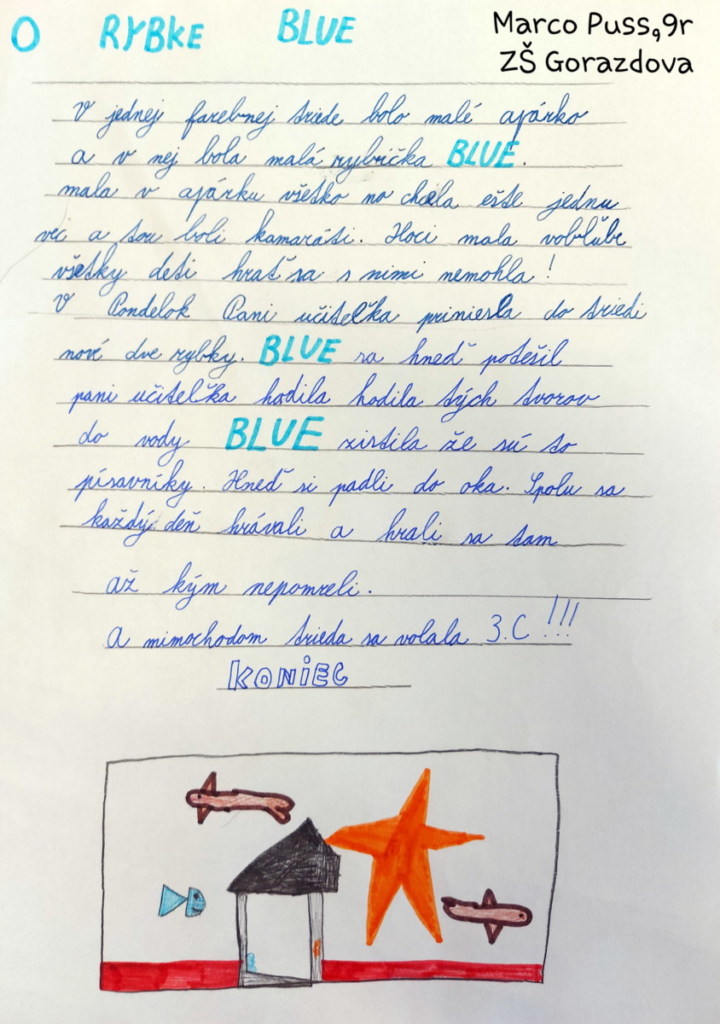 O RYBKE BLUE
Marco Puss, 9r
ZŠ Gorazdova
V jednej farebnej triede bolo malé ajárko
a v nej bola malá rybička BLUE.
mala v ajárku všetko no chcela ešte jednu
vec a tou boli kamaráti. Hoci mala voblube
všetky deti hrať sa s nimi nemohla!
V Pondelok Pani učiteľka priniesla do triedi
nové dve rybky. BLUE sa hneď potešil
pani učiteľka hodila hodila tých tvorov
do vody BLUE zistila že sú to
písavníky. Hneď si padli do oka. Spolu sa
každý deň hrávali a hrali sa tam
až kým nepomreli.
A mimochodom trieda sa volala 3.C!!!
KONIEC